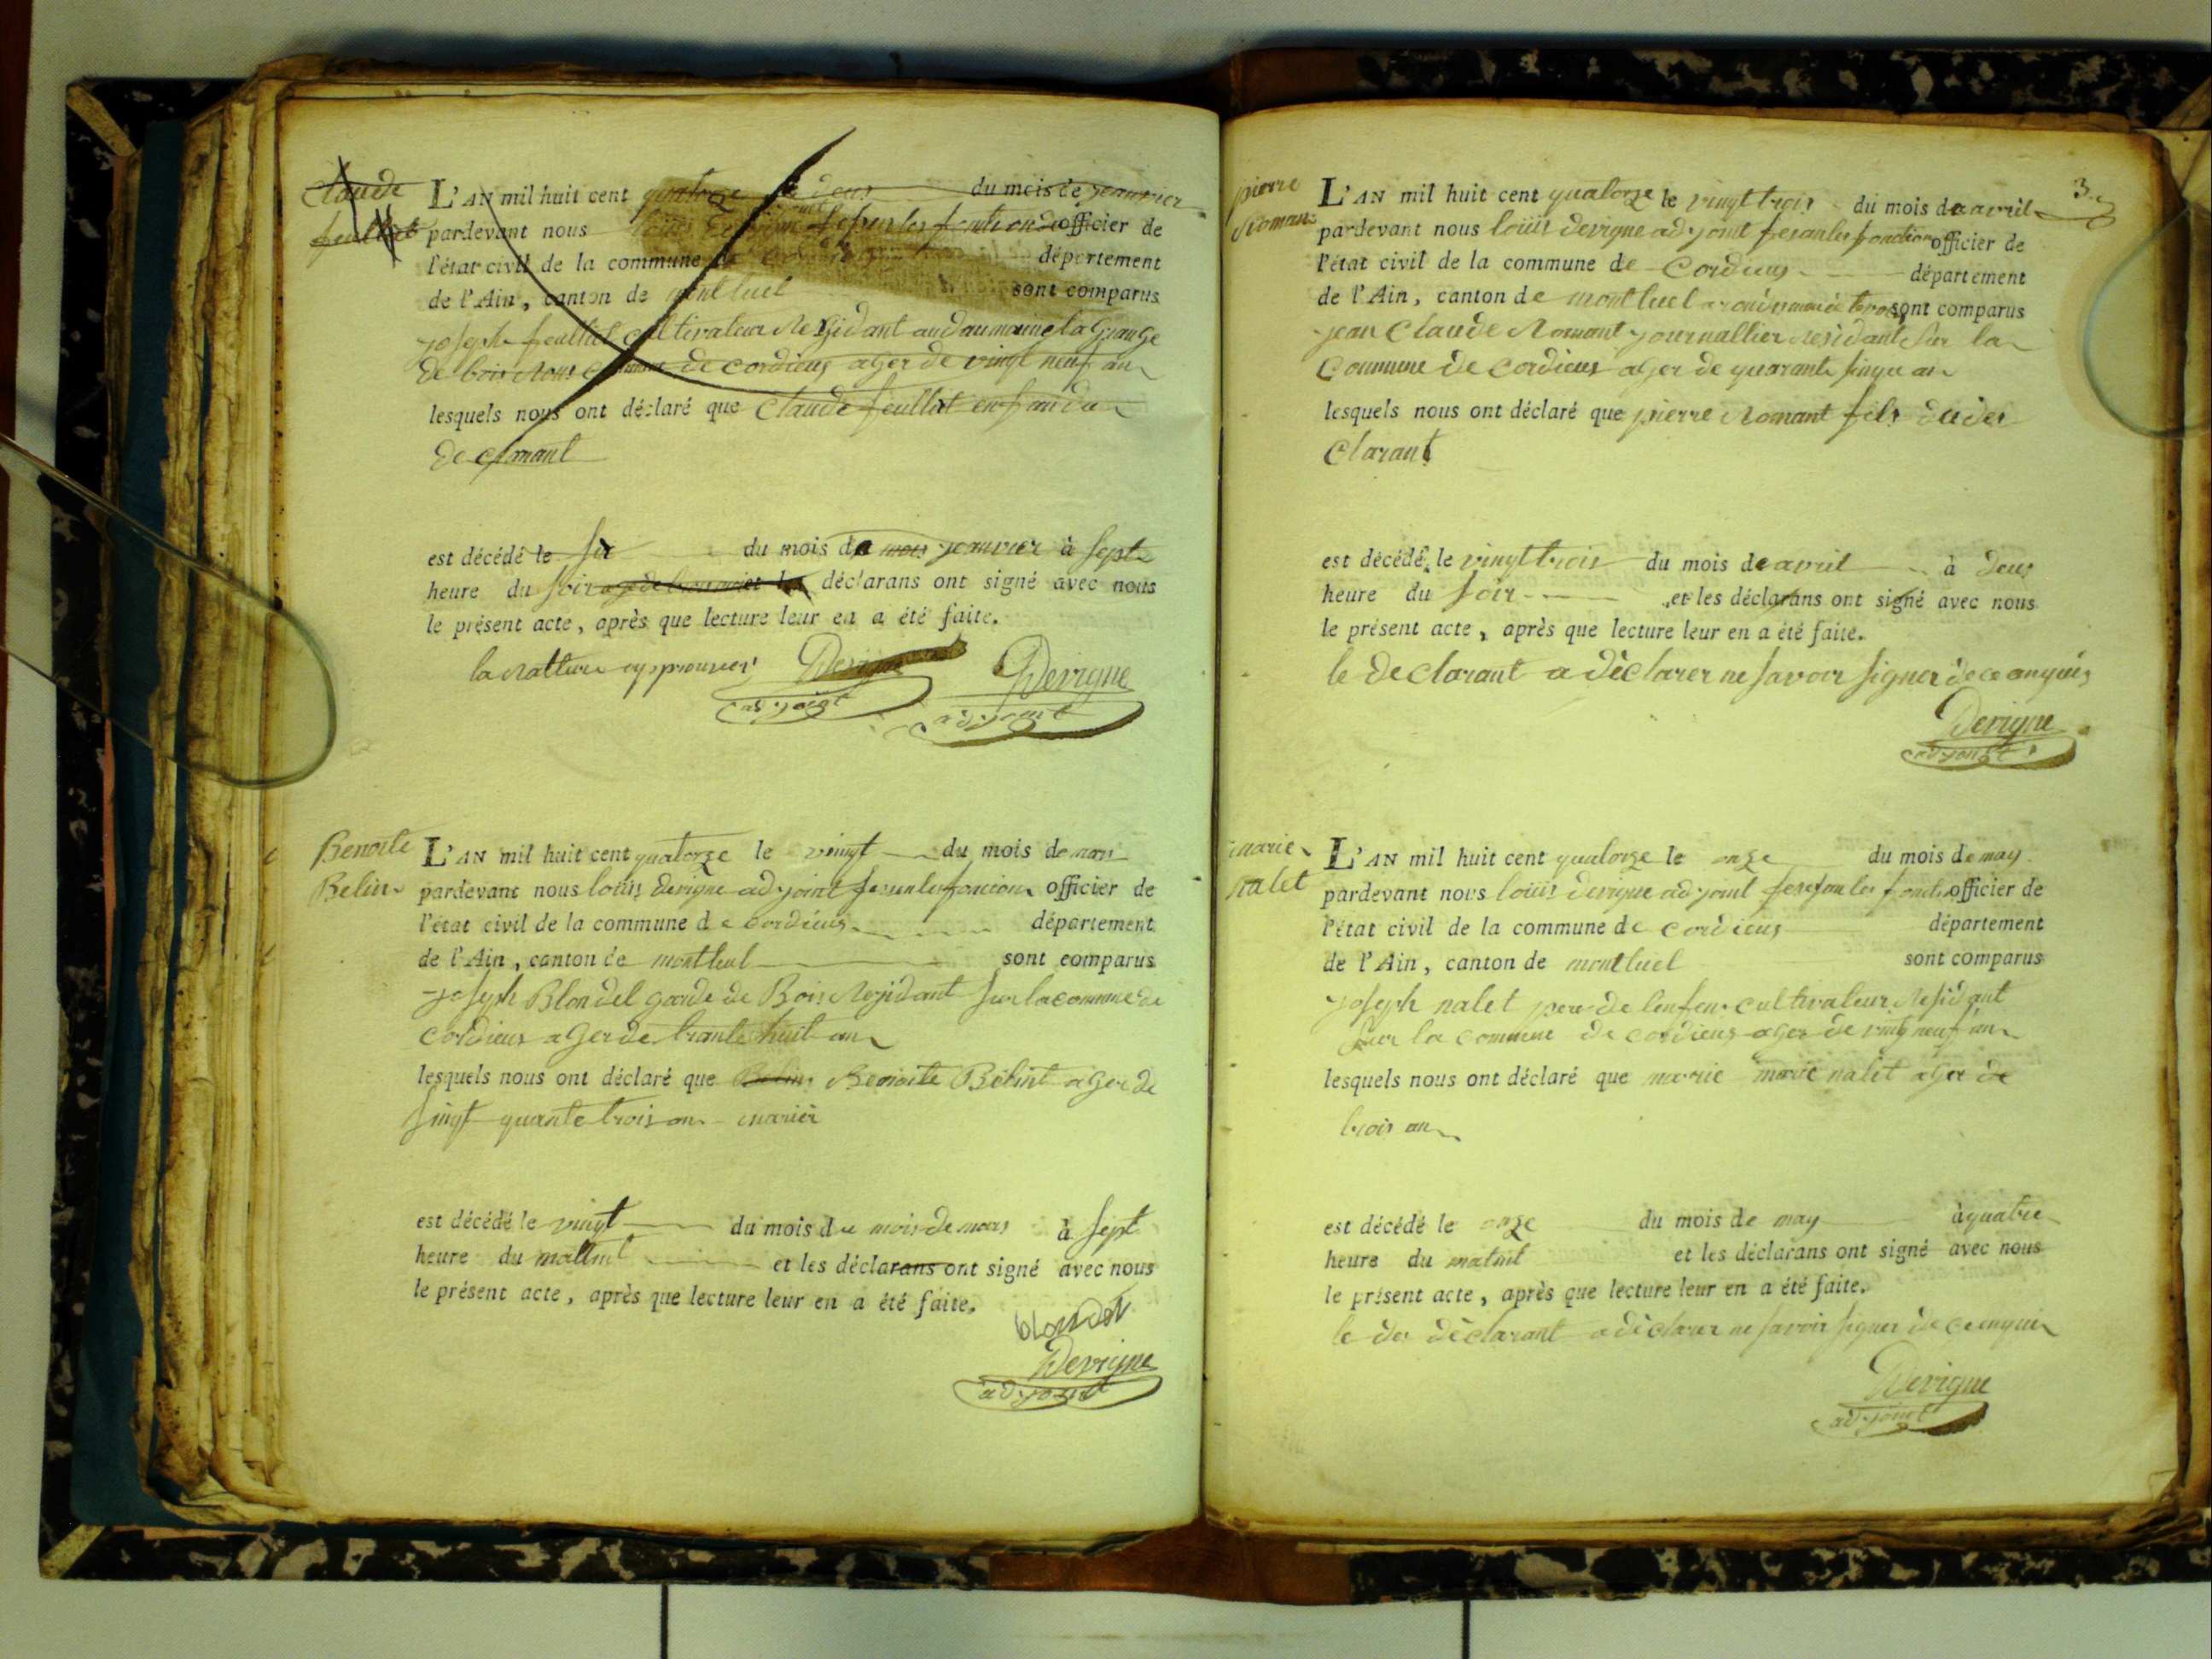 Claude
feulliet
L'AN mil huit cent quatorze le deus du mois de jeanvier
pardevant nous louis devigne fesen les fontion de officier de
l'état civil de la commune de département
de l'Ain, canton de montluel sont comparus
joseph feulliet cultivateur Residant au la Grange
de bois de cordieus ager de vingt neuf an
lesquels nous ont déclaré que Claude feulliet enfan du
est décédé le du mois de mois jeanvier à Sept
heure du Soir déclarans ont signé avec nous
le présent acte, après que lecture leur en a été faite.
la Ratture
Devigne Devigne
adjoint adjoint
Benoite
Belin
L'AN mil huit cent quatorze le vingt du mois de mars
pardevant nous louis devigne adjoint officier de
l'état civil de la commune de Cordieus département
de l'Ain, canton de montluel sont comparus
joseph Blondel garde de Bois Residant Sur la comune de
Cordieus ager de trante huit an
lesquels nous ont déclaré que Belin Benoite Belint ager de
Singt quante trois an marier
est décédé le vingt du mois du mois de mars à Sept
heure du mattint et les déclarans ont signé avec nous
le présent acte, après que lecture leur en a été faite.
blondel
Devigne
adjoint
3
pierre
Romans
L'AN mil huit cent quatorze le vingt trois du mois de avril
pardevant nous louis devigne adjoint fesan les fonction officier de
l'état civil de la commune de Cordieus département
de l'Ain, canton de montluel sont comparus
jean Claude Romant journallier residant Sur la
Commune de Cordieus ager de quarante sinque an
lesquels nous ont déclaré que pierre Romant fils du de
Clarant
est décédé le vingt trois du mois de avril à Deus
heure du Soir et les déclarans ont signé avec nous
le présent acte, après que lecture leur en a été faite.
le declarant a déclarer ne savoir signer de ce anquis
Devigne
adjoint
marie
nalet
L'AN mil huit cent quatorze le onze du mois de may
pardevant nous louis devigne adjoint officier de
l'état civil de la commune de Cordieus département
de l'Ain, canton de montluel sont comparus
joseph nalet pere de lenfen cultivateur Residant
Sur la comune de cordieus ager de vint neuf an
lesquels nous ont déclaré que marie marie nalet ager de
trois an
est décédé le onze du mois de may à quatre
heure du matint et les déclarans ont signé avec nous
le présent acte, après que lecture leur en a été faite.
le de déclarant a déclarer ne savoir signer de ce enquis
Devigne
adjoint